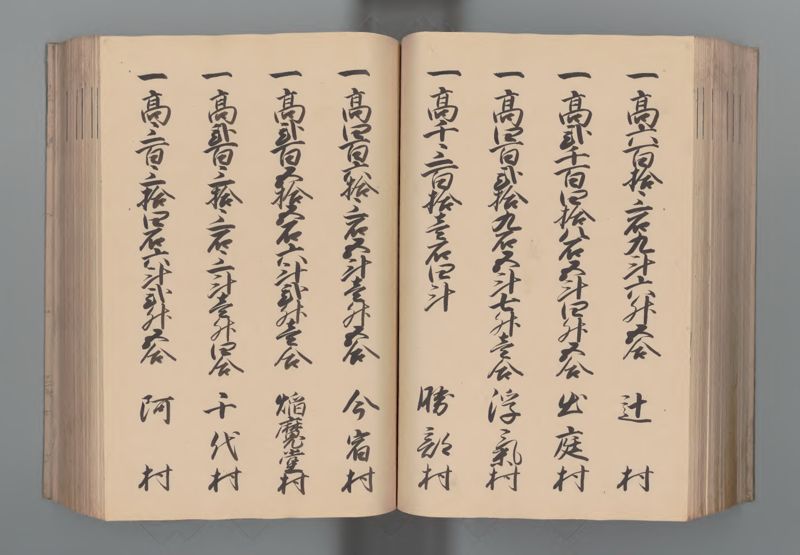 一高六百拾三石九斗六升五合 辻村
一高弐千百四拾八石五斗四升五合 出庭村
一高四百弐拾九石五斗七升壱合 浮氣村
一高千三百拾壱石四斗 勝部村
一高四百六拾三石五斗壱升五合 今宿村
一高弐百五拾五石六斗弐升壱合 焔魔堂村
一高弐百三拾三石二斗壱升四合 千代村
一高三百三拾四石六斗弐升五合 阿村